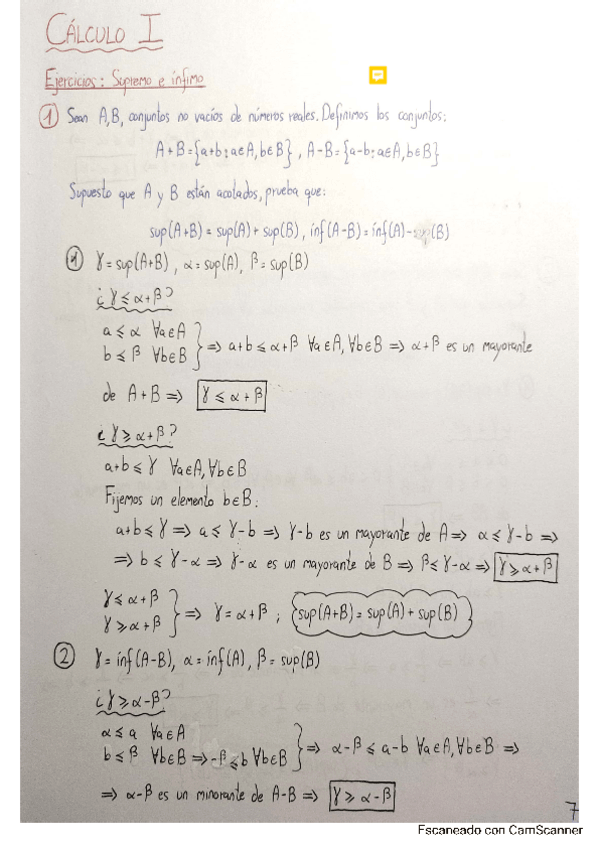 CÁLCULO I
Ejercicios: Supremo e ínfimo
① Sean A,B, conjuntos no vacíos de números reales. Definimos los conjuntos:
A+B={a+b: a∈A, b∈B} , A-B={a-b: a∈A, b∈B}
Supuesto que A y B están acotados, prueba que:
sup(A+B)=sup(A)+sup(B) , ínf(A-B)=ínf(A)-sup(B)
① γ=sup(A+B) , α=sup(A), β=sup(B)
¿γ≤α+β?
a≤α ∀a∈A
b≤β ∀b∈B } ⇒ a+b≤α+β ∀a∈A, ∀b∈B ⇒ α+β es un mayorante
de A+B ⇒ γ≤α+β
¿γ≥α+β?
a+b≤γ ∀a∈A, ∀b∈B
Fijemos un elemento b∈B:
a+b≤γ ⇒ a≤γ-b ⇒ γ-b es un mayorante de A ⇒ α≤γ-b ⇒
⇒ b≤γ-α ⇒ γ-α es un mayorante de B ⇒ β≤γ-α ⇒ γ≥α+β
γ≤α+β
γ≥α+β } ⇒ γ=α+β ; sup(A+B)=sup(A)+sup(B)
② γ=ínf(A-B), α=ínf(A), β=sup(B)
¿γ≥α-β?
α≤a ∀a∈A
b≤β ∀b∈B ⇒ -β≤-b ∀b∈B } ⇒ α-β≤a-b ∀a∈A, ∀b∈B ⇒
⇒ α-β es un minorante de A-B ⇒ γ≥α-β
7
Escaneado con CamScanner